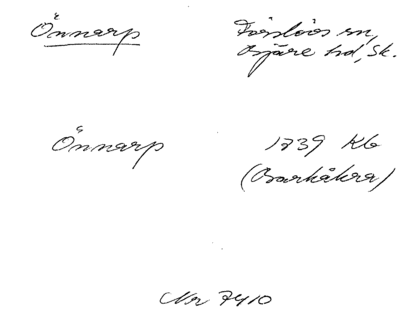 Önnarp
Förslövs sn,
Bjäre hd, Sk.
Önnarp
1739 Kb
(Barkåkra)
Nr 7410